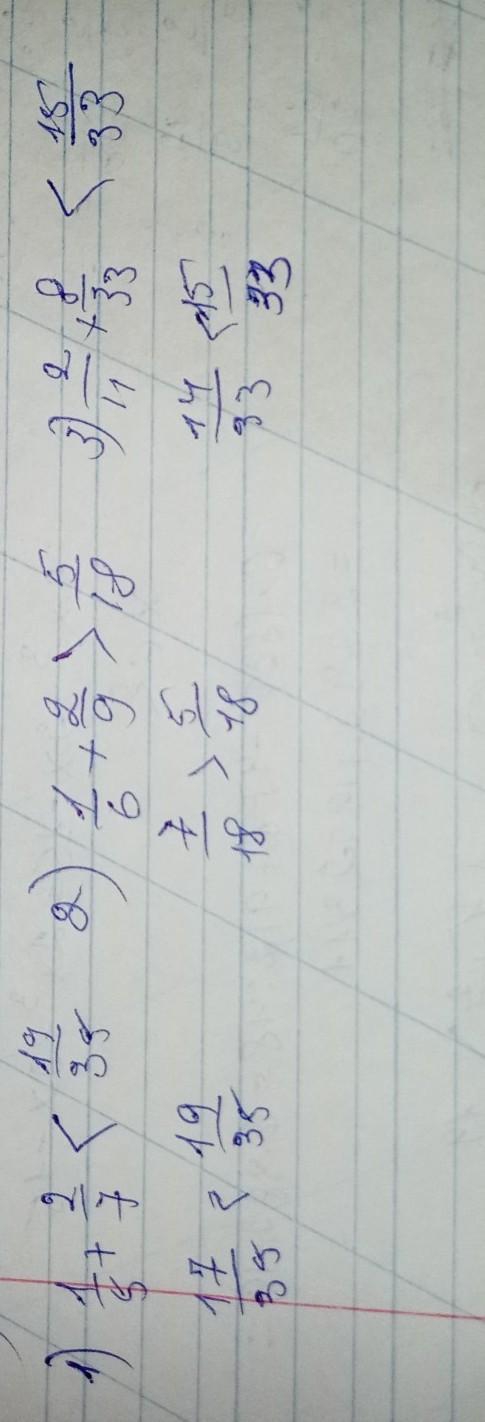 1) 1/5 + 2/7 < 19/35 2) 1/6 + 2/9 > 5/18 3) 2/11 + 8/33 < 15/33
17/35 < 19/35 7/18 > 5/18 14/33 < 15/33